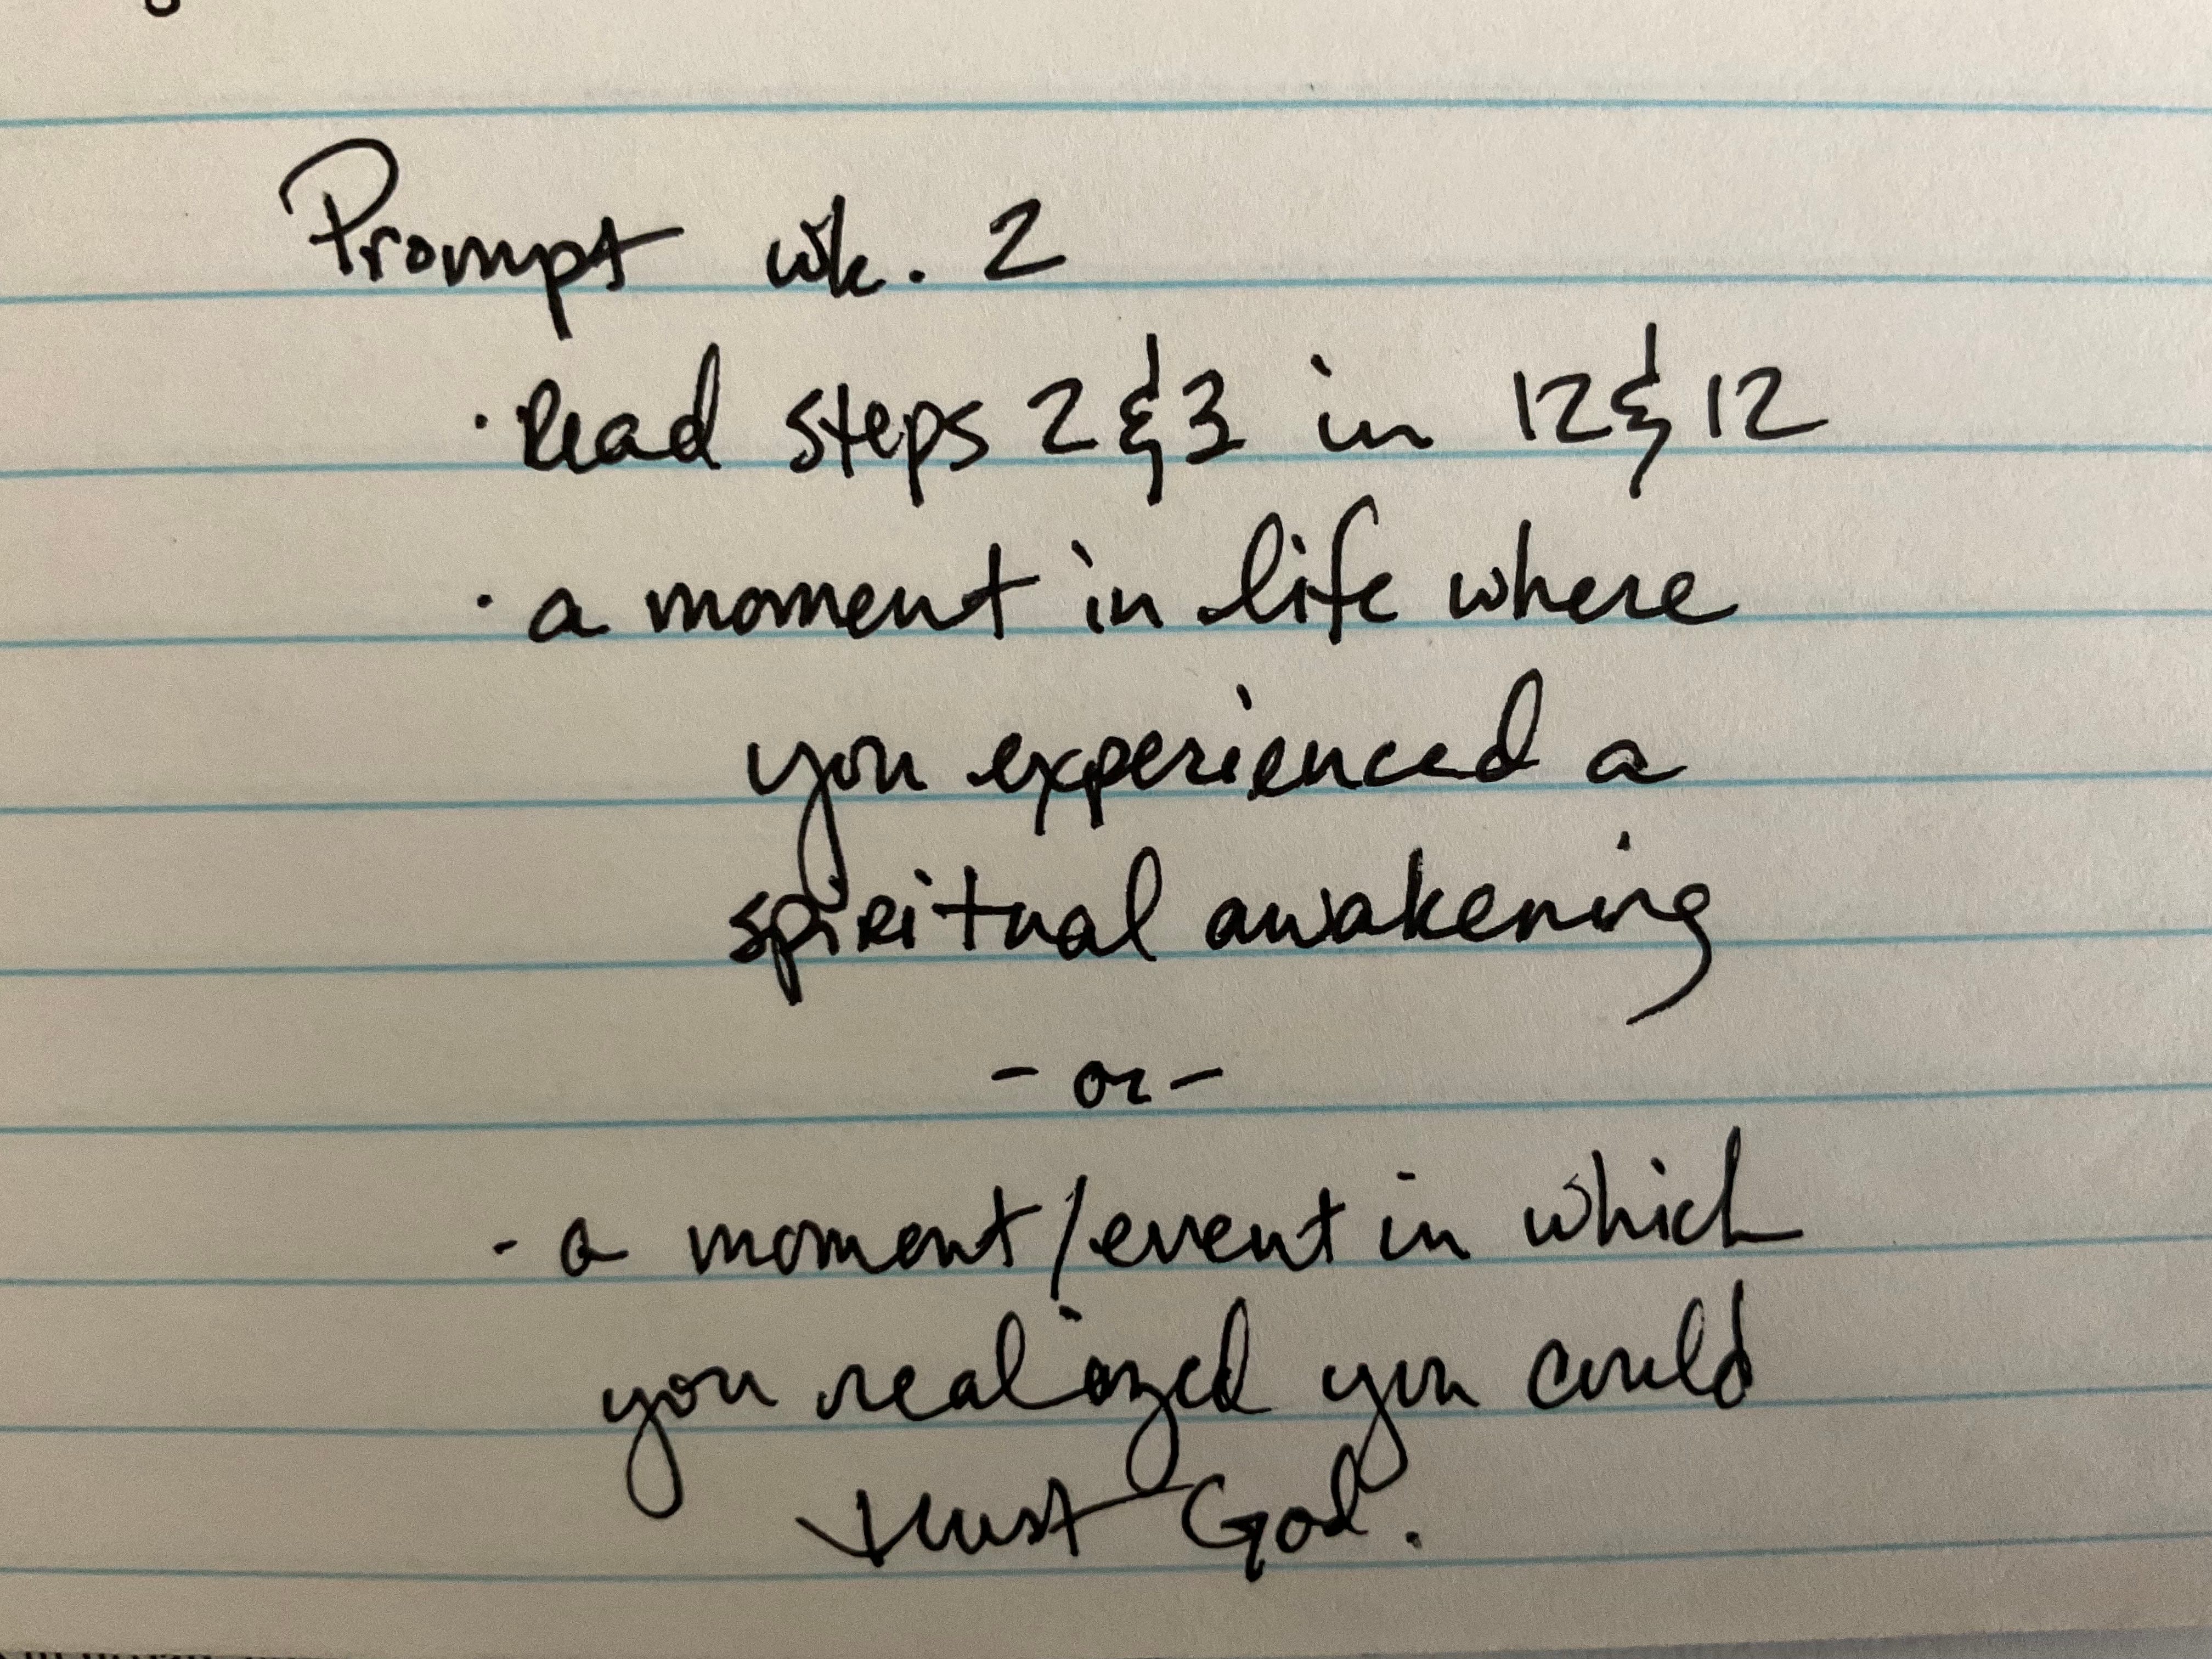 Prompt wk. 2
· Read steps 2 & 3 in 12 & 12
· a moment in life where
you experienced a
spiritual awakening
- or -
- a moment/event in which
you realized you could
trust God.